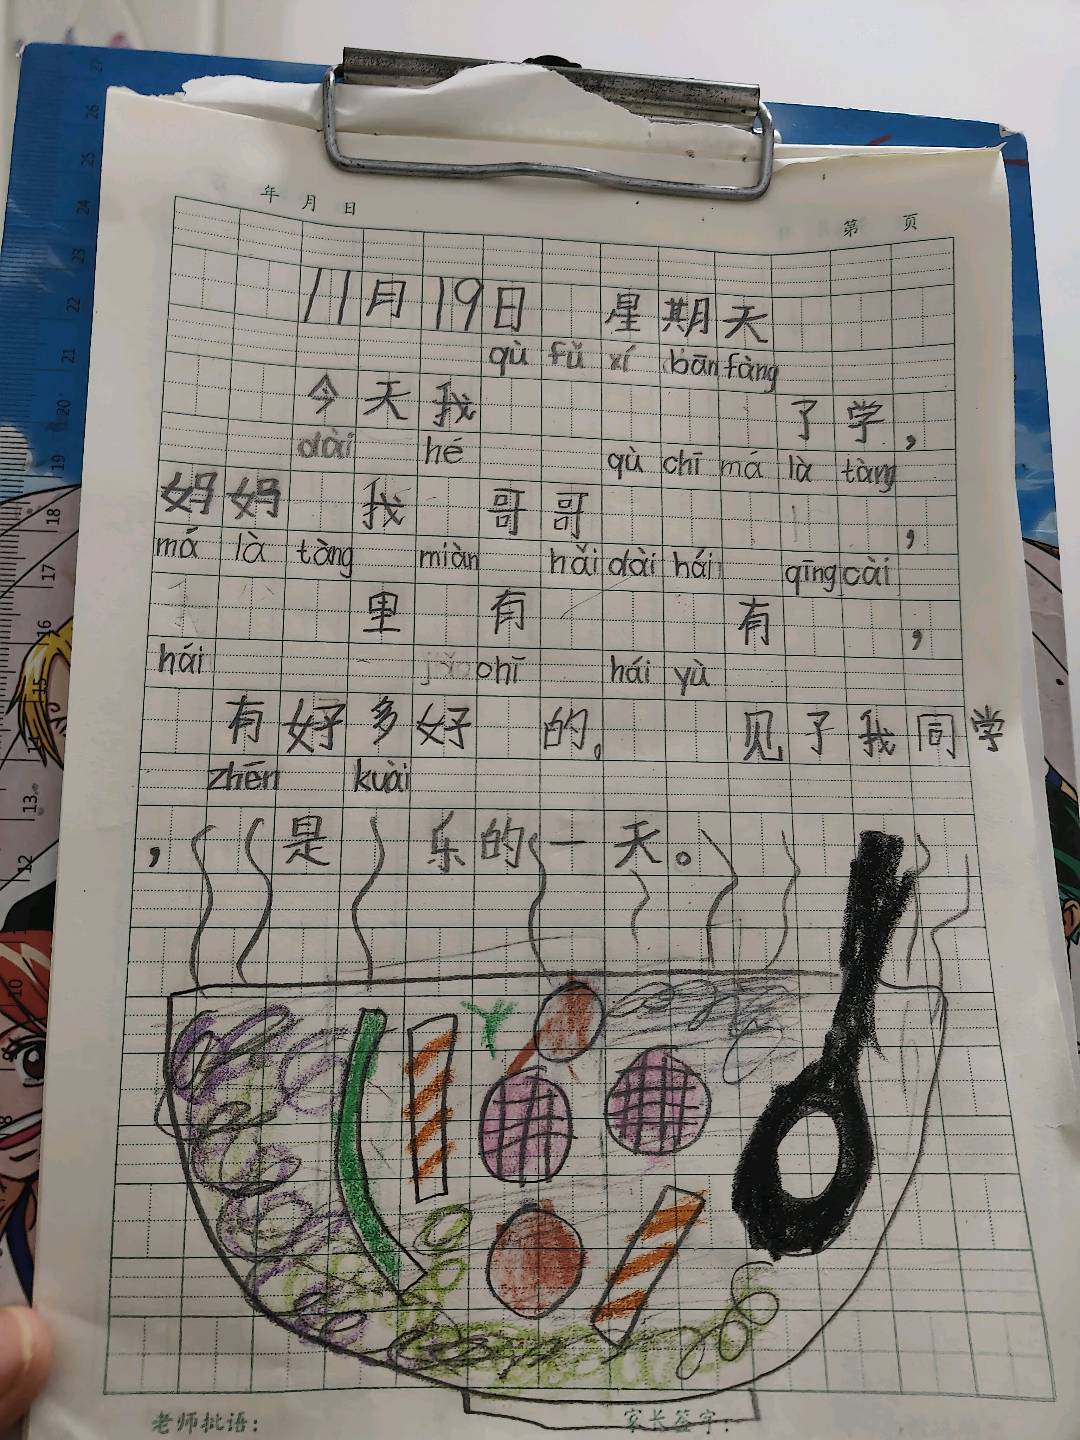 年 月 日
第 页
11月19日 星期天
qù fǔ xí bān fàng
今天我 了学，
dài hé qù chī má là tàng
妈妈 我 哥哥 ，
má là tàng miàn hǎi dài hái qīng cài
里 有 有 ，
hái chī hái yù
有好多好 的。 见了我同学
zhēn kuài
，是 乐的一天。
老师批语：
家长签字：
27
26
25
24
23
22
21
20
19
18
17
16
15
13
12
10